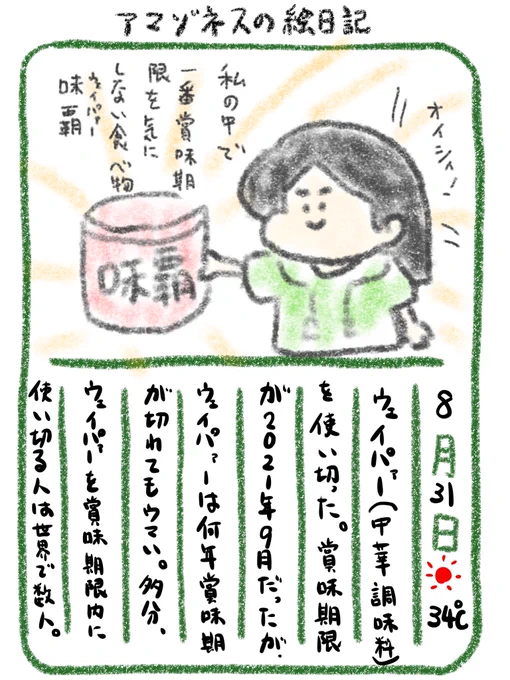 アマゾネスの絵日記
私の中で
一番賞味期
限を気に
しない食べ物
ウェイパァー
味覇
オイシイ!
味覇
8月31日 34℃
ウェイパァー(中華調味料)
を使い切った。賞味期限
が2021年9月だったが、
ウェイパァーは何年賞味期
が切れてもウマい。多分、
ウェイパァーを賞味期限内に
使い切る人は世界で数人。